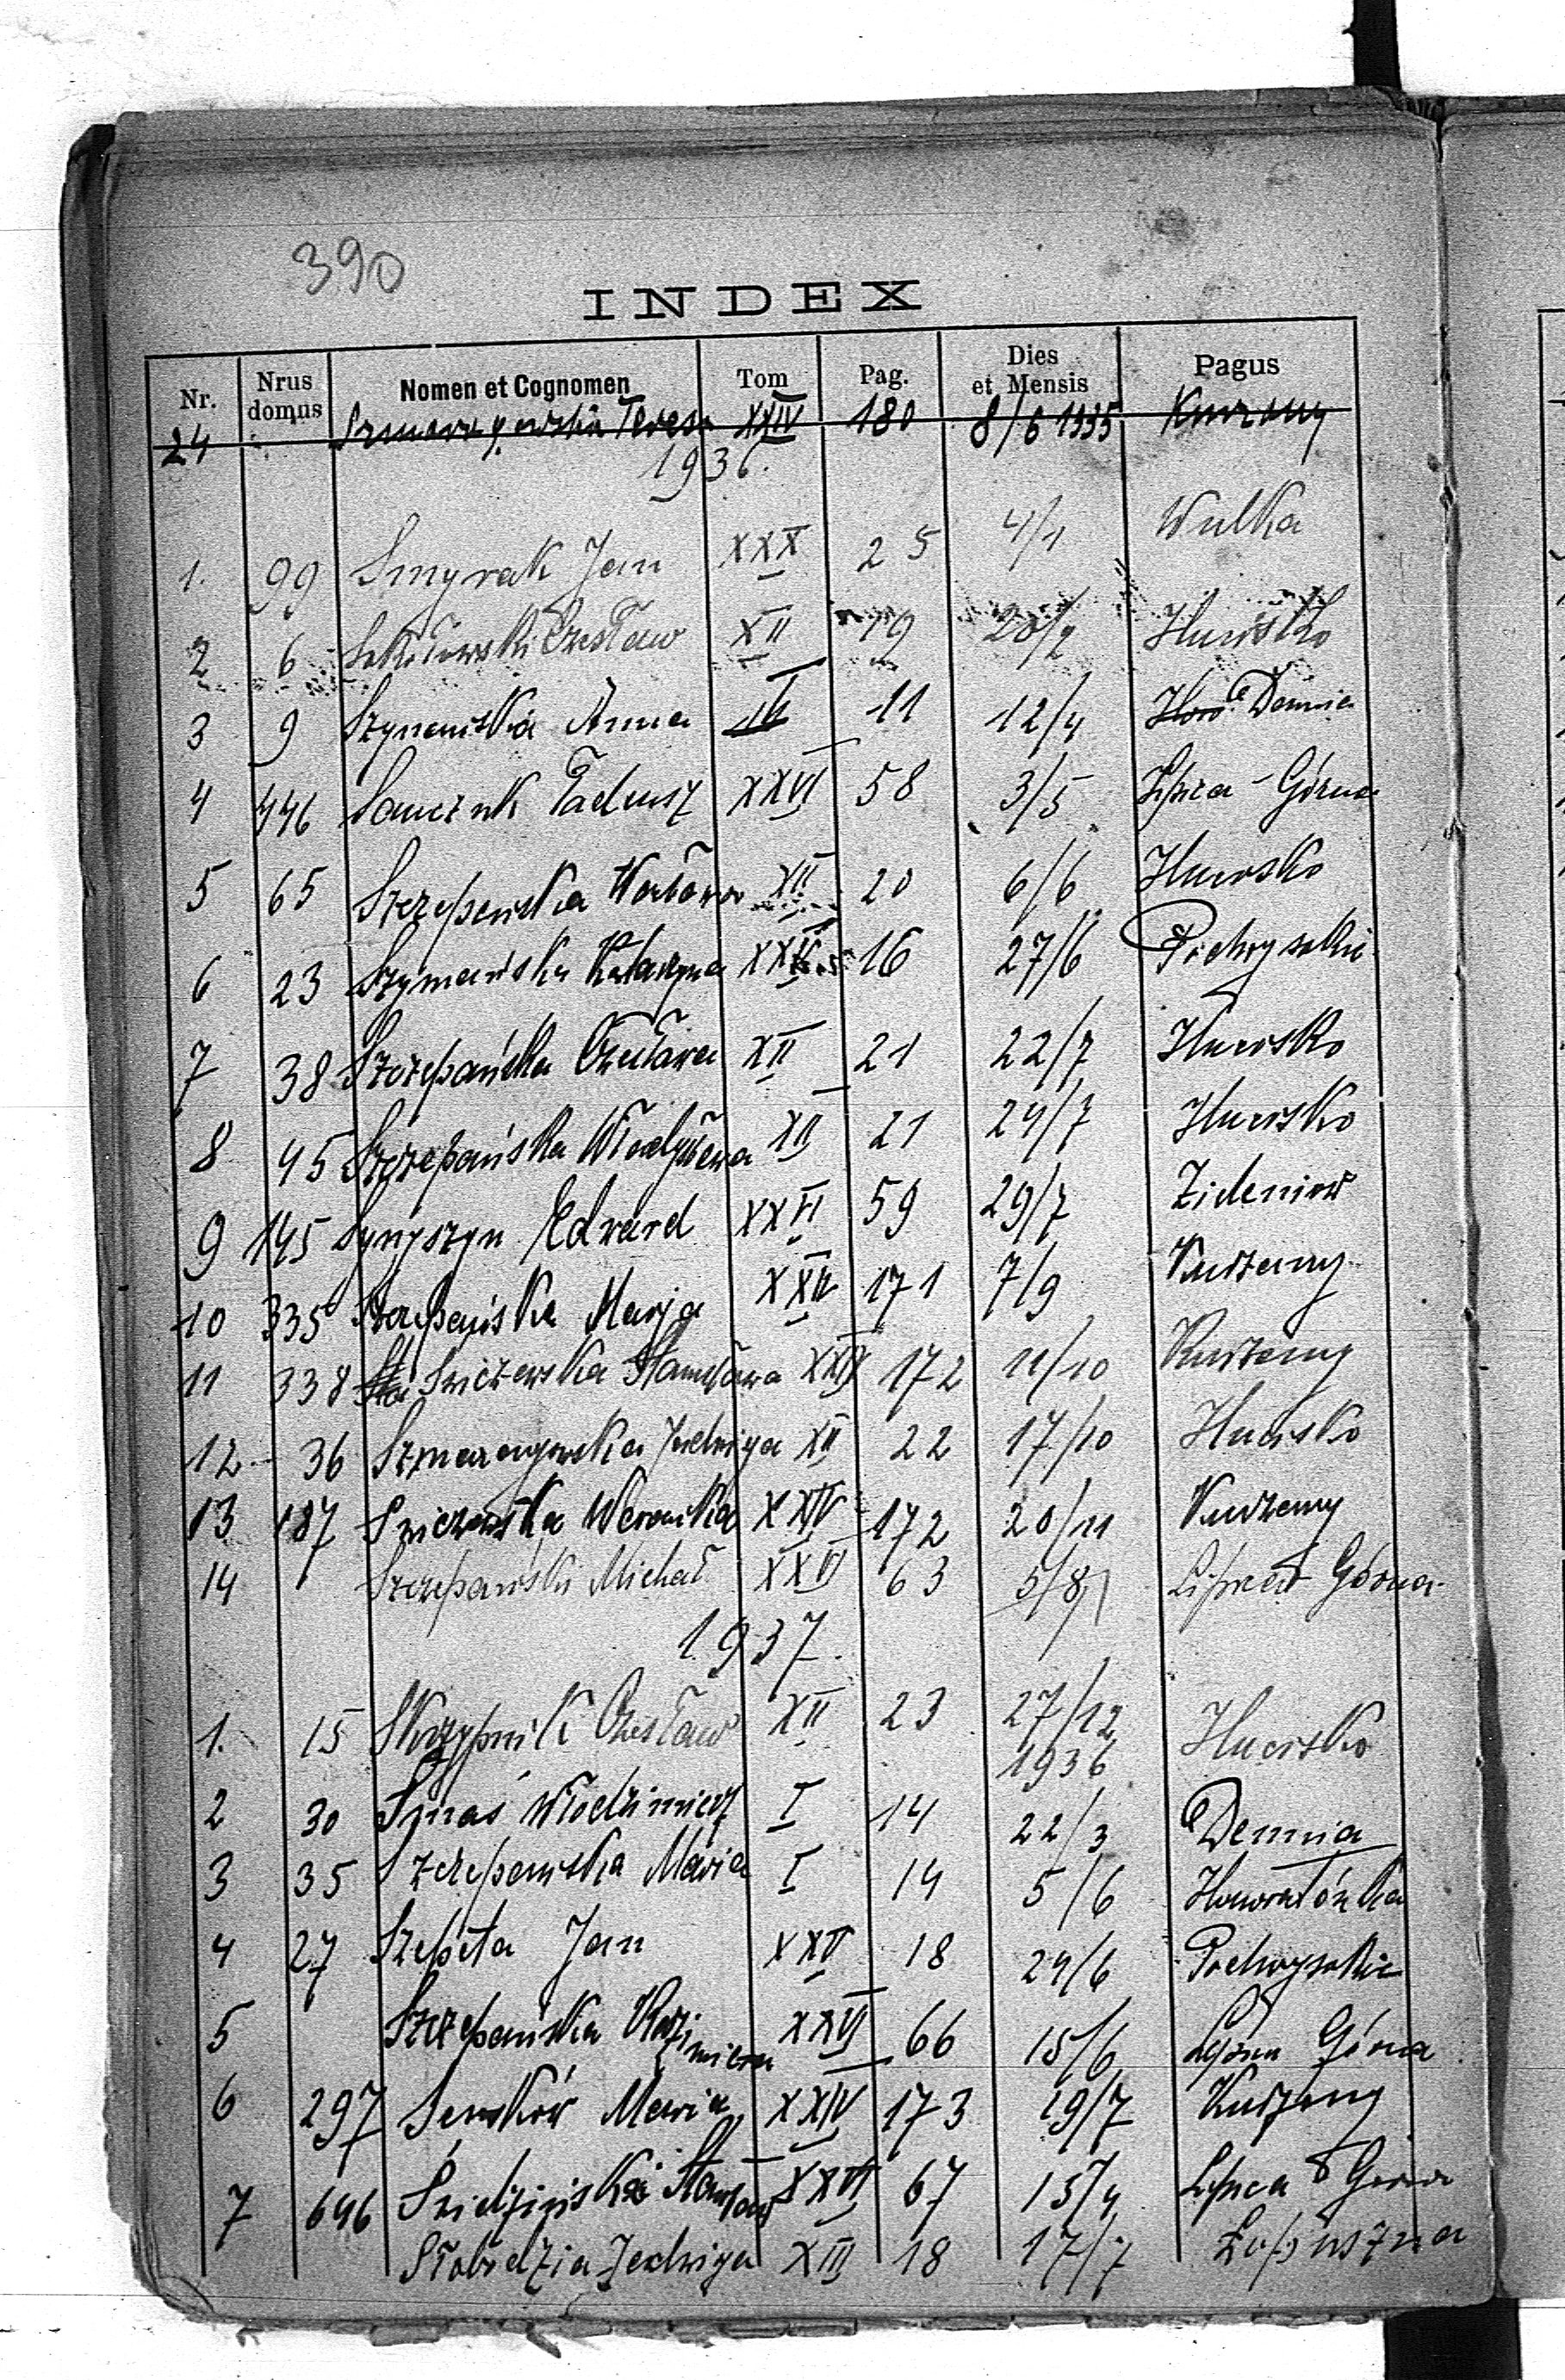 390
INDEX
Nr. Nrus domus Nomen et Cognomen Tom Pag. Dies et Mensis Pagus
24 Szmaragowska Teresa XXIV 180 8/6 1935 Kurzany
1936.
1. 99 Smyrak Jan XXX 25 4/1 Wulka
2 6 Czesław XII 19 20/2 Hucisko
3 9 Szymańska Anna 11 12/4 Demnia
4 446 Sawczuk Tadeusz XXVI 58 3/5 Lipica-Górna
5 65 Szczepańska XII 20 6/6 Hucisko
6 23 Szymańska Katarzyna 16 27/6 Podwysokie
7 38 Szczepańska Czesława XII 21 22/7 Hucisko
8 45 Szczepańska Władysława XII 21 24/7 Hucisko
9 145 Synyszyn Edward XXVI 59 29/7
10 335 Szczepańska Marja XXIV 171 7/9 Kurzany
11 338 Świczewska Stanisława XXIV 172 11/10 Kurzany
12 36 Szmaragowska Jadwiga XII 22 17/10 Hucisko
13 187 Weronika XXIV 172 20/11 Kurzany
14 Szczepański Michał XXVI 63 5/8 Lipica Górna
1937.
1. 15 Skrzypnik Czesław XII 23 27/12 1936 Hucisko
2 30 Włodzimierz I 14 22/3 Demnia
3 35 Szczepańska Maria I 14 5/6
4 27 Szepeta Jan XXV 18 24/6 Podwysokie
5 Szczepańska Kazimiera XXVI 66 15/6 Lipica Górna
6 297 Seńków Maria XXIV 173 19/7 Kurzany
7 646 Stanisław XXVI 67 15/4 Lipica Górna
Słobodzia Jadwiga XIII 18 17/7 Łopuszna